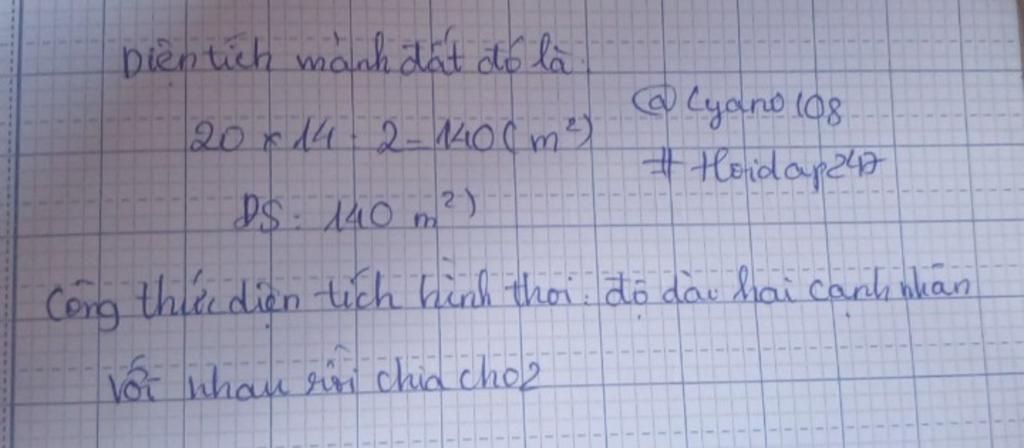 Diện tích mảnh đất đó là:
20 x 14 : 2 = 140 (m²)
ĐS: 140 m²)
@Cyano108
#Hoidap247
Công thức diện tích hình thoi: độ dài hai cạnh nhân
với nhau rồi chia cho 2